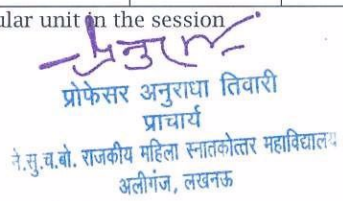 ular unit in the session
अनुराधा
प्रोफेसर अनुराधा तिवारी
प्राचार्य
ने.सु.च.बो. राजकीय महिला स्नातकोत्तर महाविद्यालय
अलीगंज, लखनऊ